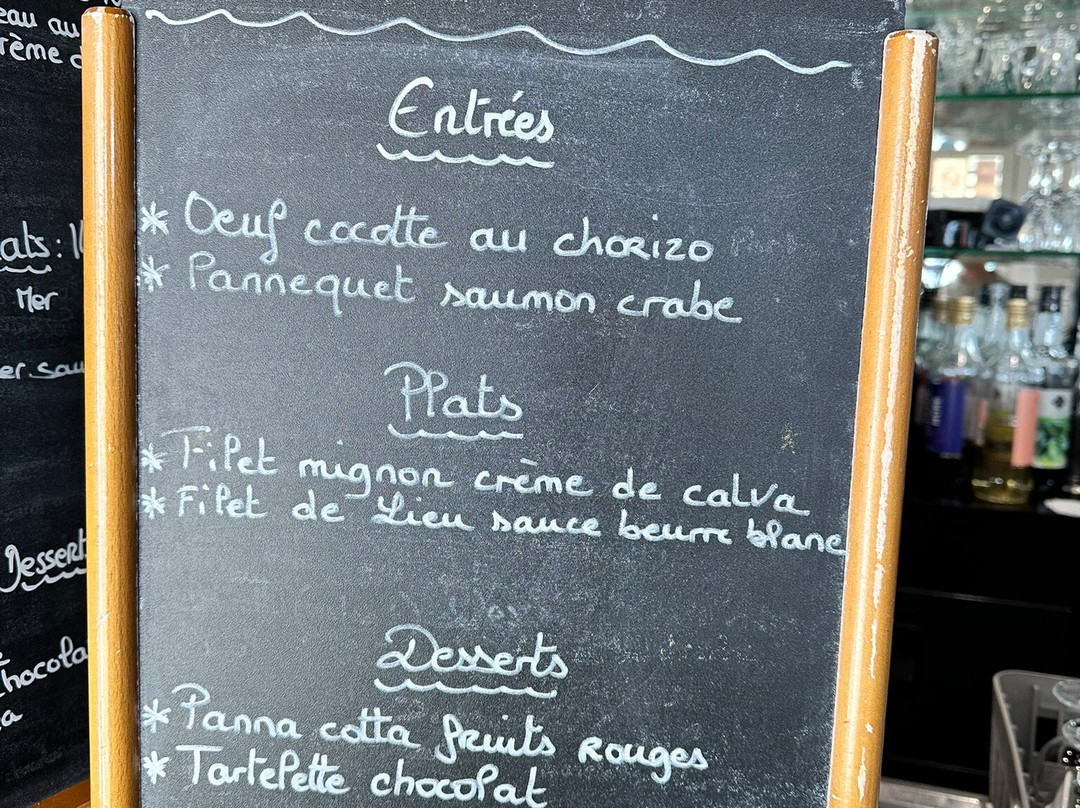 eau au
rème d
ats:
Mer
er sau
Desserts
chocola
a
Entrées
* Oeuf cocotte au chorizo
* Pannequet saumon crabe
Plats
* Filet mignon crème de calva
* Filet de Lieu sauce beurre blanc
Desserts
* Panna cotta fruits rouges
* Tartelette chocolat